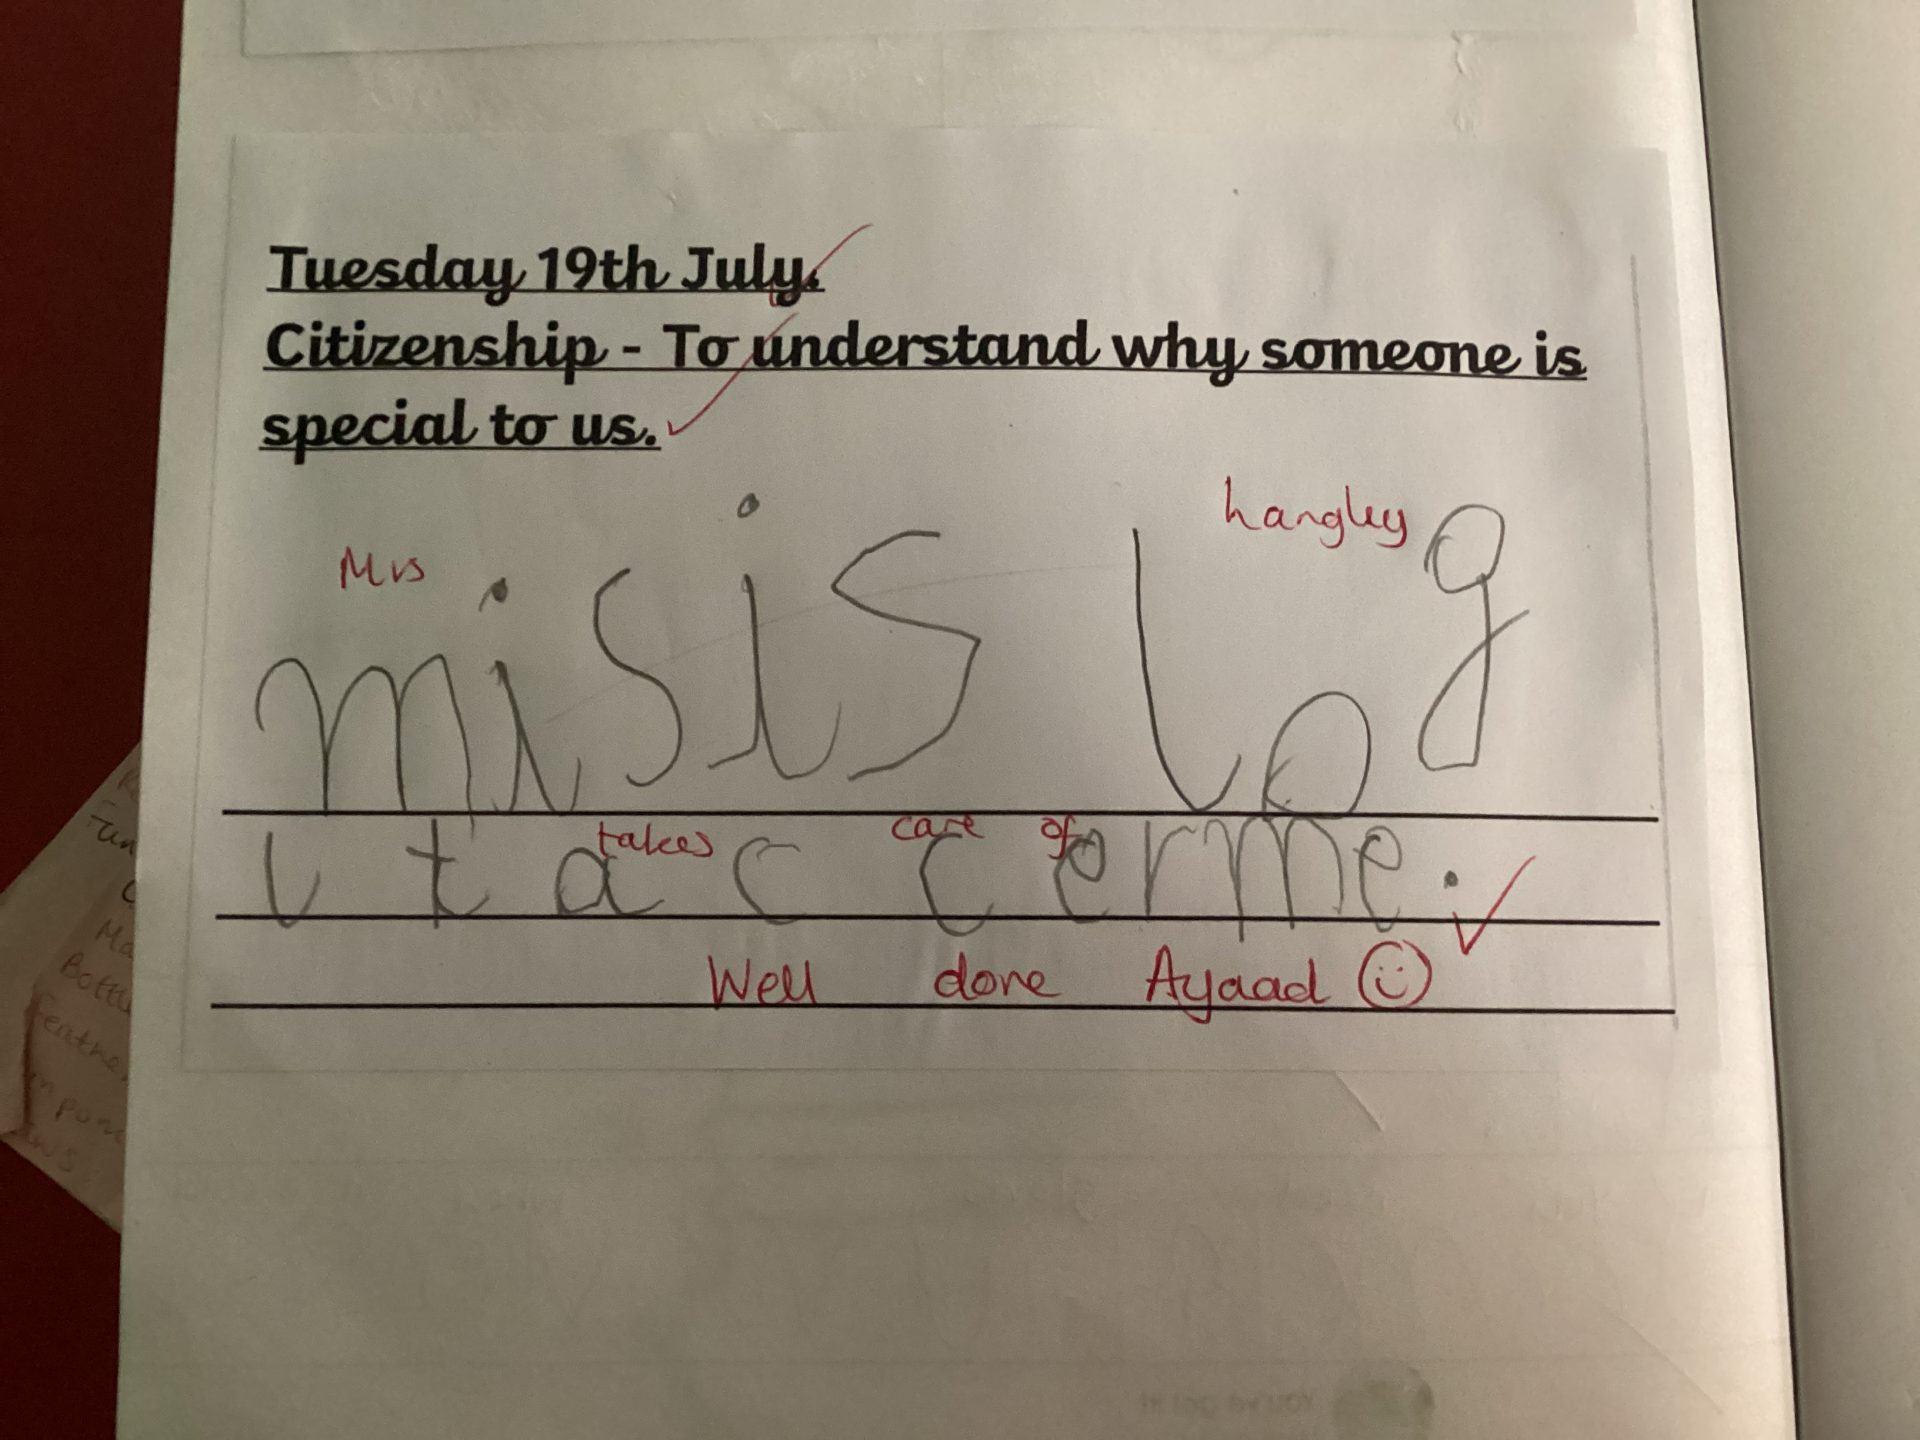 Tuesday 19th July.
Citizenship - To understand why someone is
special to us.
Mrs
hangley
misis log
takes care of
l t a c c er me.
Well done Ayaad